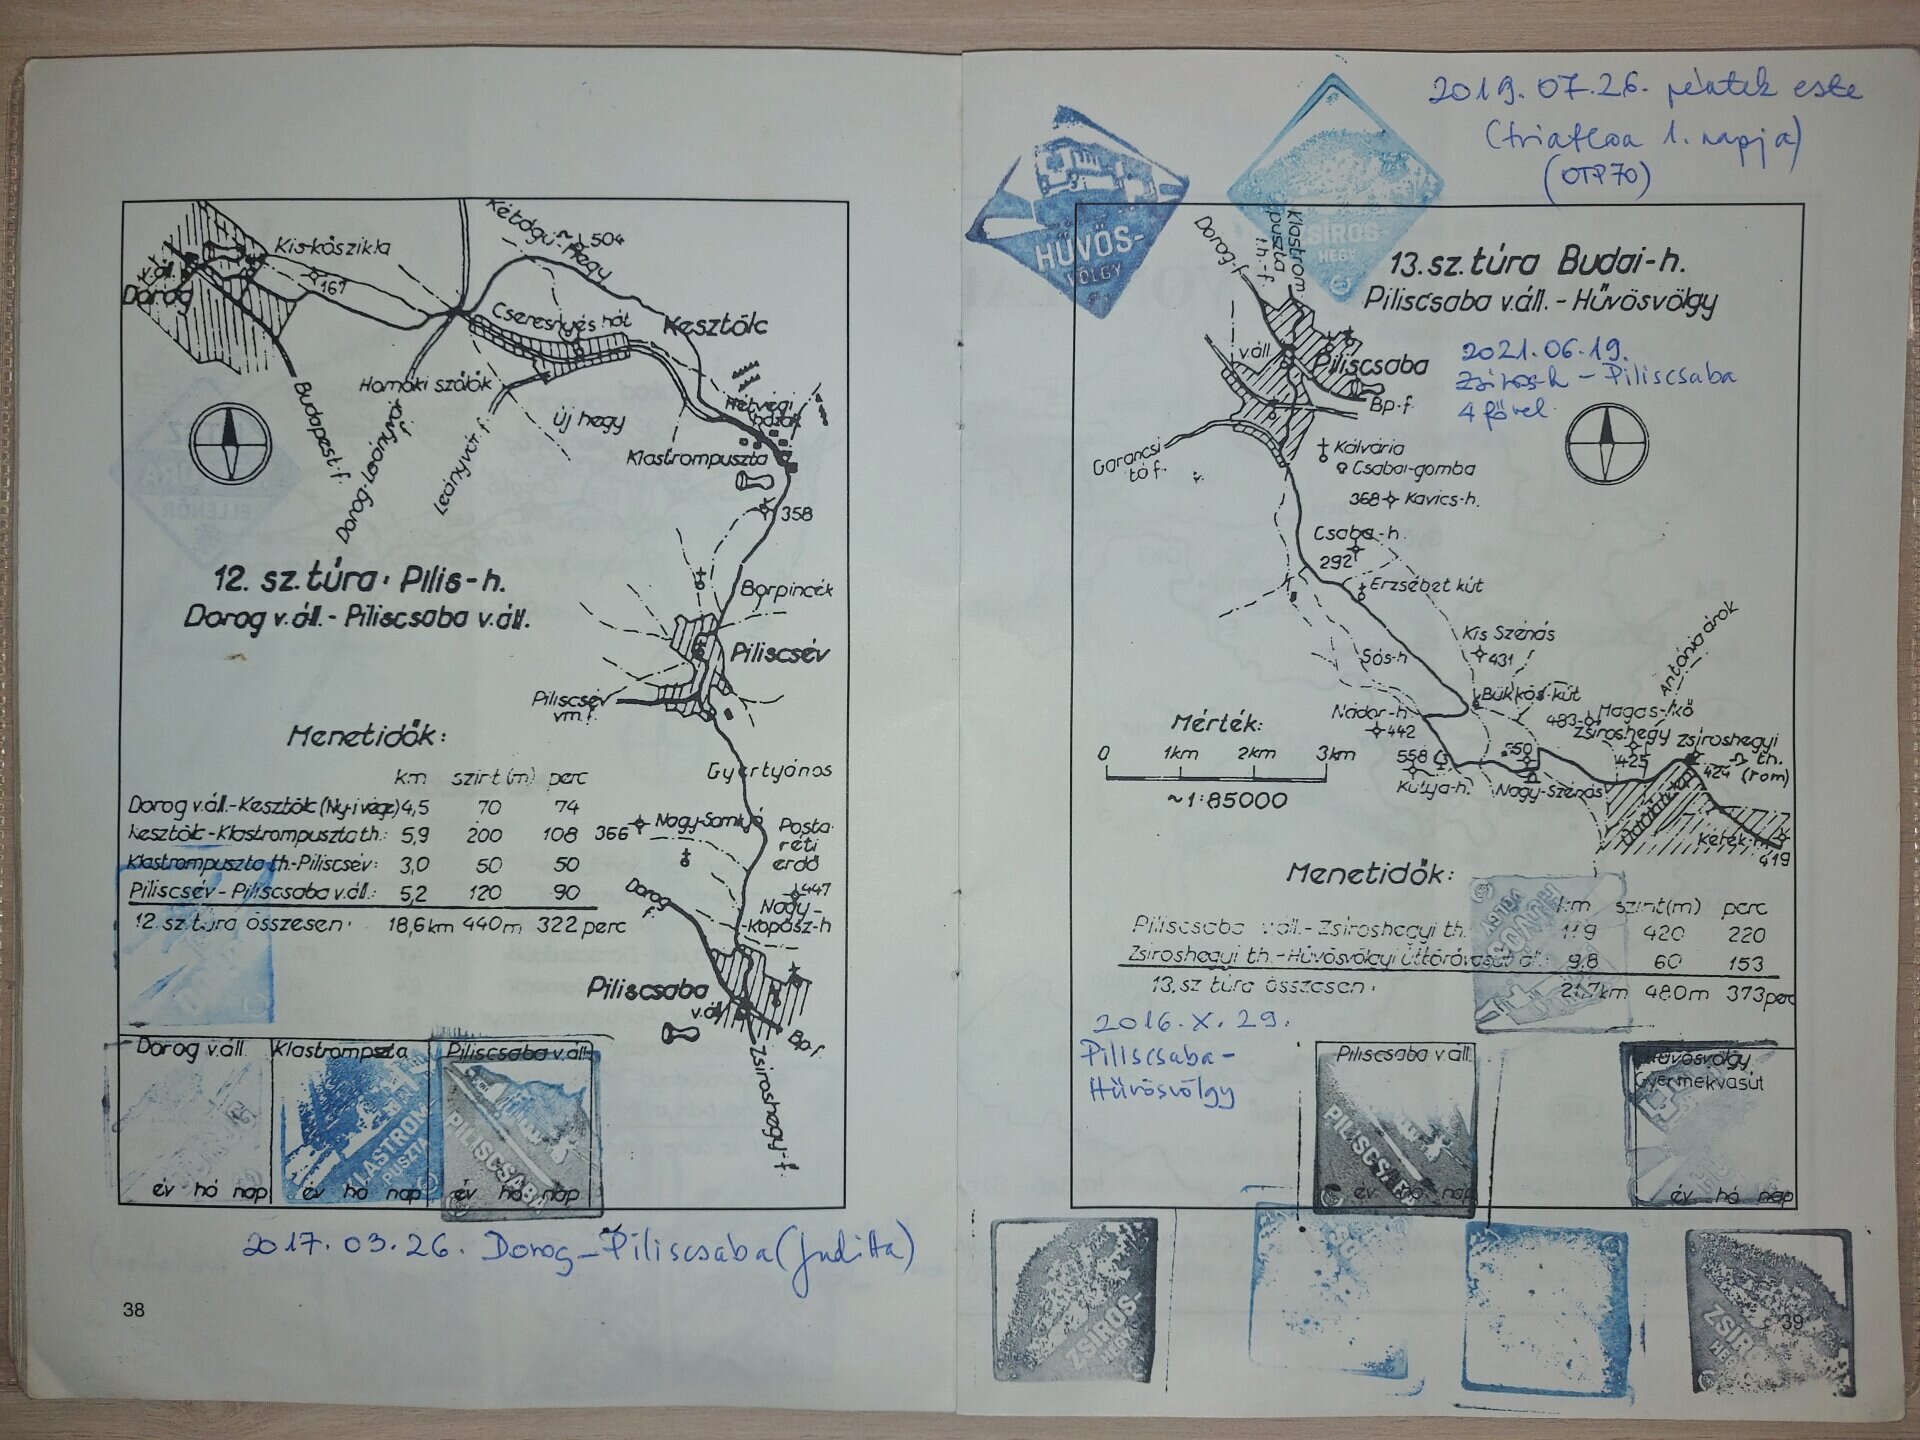 Kétágú-hegy
504
Kis-kőszikla
v.áll.
167
Dorog
Cseresnyés hát
Kesztölc
Homoki szőlők
Hétvégi házak
Budapest f.
Új hegy
Dorog-Leányvár f.
Leányvár f.
Klastrompuszta
358
12. sz. túra: Pilis-h.
Dorog v.áll. - Piliscsaba v.áll.
Borpincék
Piliscsév
Piliscsév vm. f.
Menetidők:
Gyertyános
km szint (m) perc
Dorog v.áll.-Kesztölc (Ny-i vége) 4,5 70 74
Kesztölc - Klastrompuszta th.: 5,9 200 108
Klastrompuszta th.-Piliscsév: 3,0 50 50
Piliscsév - Piliscsaba v.áll.: 5,2 120 90
12. sz. túra összesen: 18,6 km 440 m 322 perc
366 Nagy-Somlyó
Posta-
réti
erdő
447
Nagy-
-kopasz-h
Dorog f.
Piliscsaba
v.áll.
Bp. f.
Zsíroshegy-f.
Dorog v.áll. Klastrompszta Piliscsaba v.áll.
KLASTROM
PUSZTA
PILISCSABA
év hó nap év hó nap év hó nap
2017.03.26. Dorog-Piliscsaba (Juditta)
38
2019.07.26. péntek este
(triatlon 1. napja)
(OTP70)
HŰVÖS-
VÖLGY
ZSIROS
HEGY
Dorog f.
Klastrom-
puszta
th.-f.
13. sz. túra Budai-h.
Piliscsaba v.áll.- Hűvösvölgy
2021.06.19.
Zsíros-h - Piliscsaba
4 fővel
v.áll.
Piliscsaba
Bp.-f.
Garancsi
tó f.
Kálvária
Csabai-gomba
368 Kavics-h.
Csaba-h.
292
Erzsébet kút
Kis Szénás
431
Antónia árok
Sós-h
Bükkös-kút
Nádor-h.
442
483
Magas-kő
Zsíroshegy
425
Zsíroshegyi
th.
(rom)
424
Mérték:
0 1km 2km 3km
~1:85000
558
Kutya-h.
550
Nagy-Szénás
419
Menetidők:
km szint(m) perc
Piliscsaba váll.- Zsíroshegyi th. 11,9 420 220
Zsíroshegyi th.-Hűvösvölgyi úttörővasút áll.: 9,8 60 153
13. sz túra összesen: 21,7 km 480 m 373 perc
2016. X. 29.
Piliscsaba-
Hűvösvölgy
Piliscsaba v.áll.
PILISCSABA
év hó nap
Hűvösvölgy
Gyermekvasút
év hó nap
ZSIROS-
HEGY
ZSIROS
HEGY
39